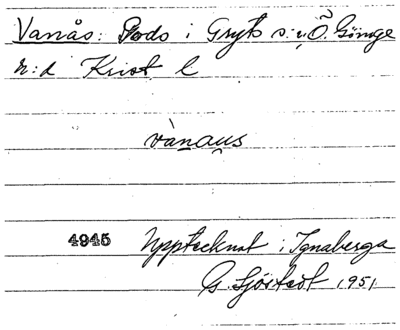 Vanås: Gods i Gryts s:n, Ö. Göinge
h:d Krist l
vànaus
4945 Upptecknat i Ignaberga
G. Sjöstedt 1951